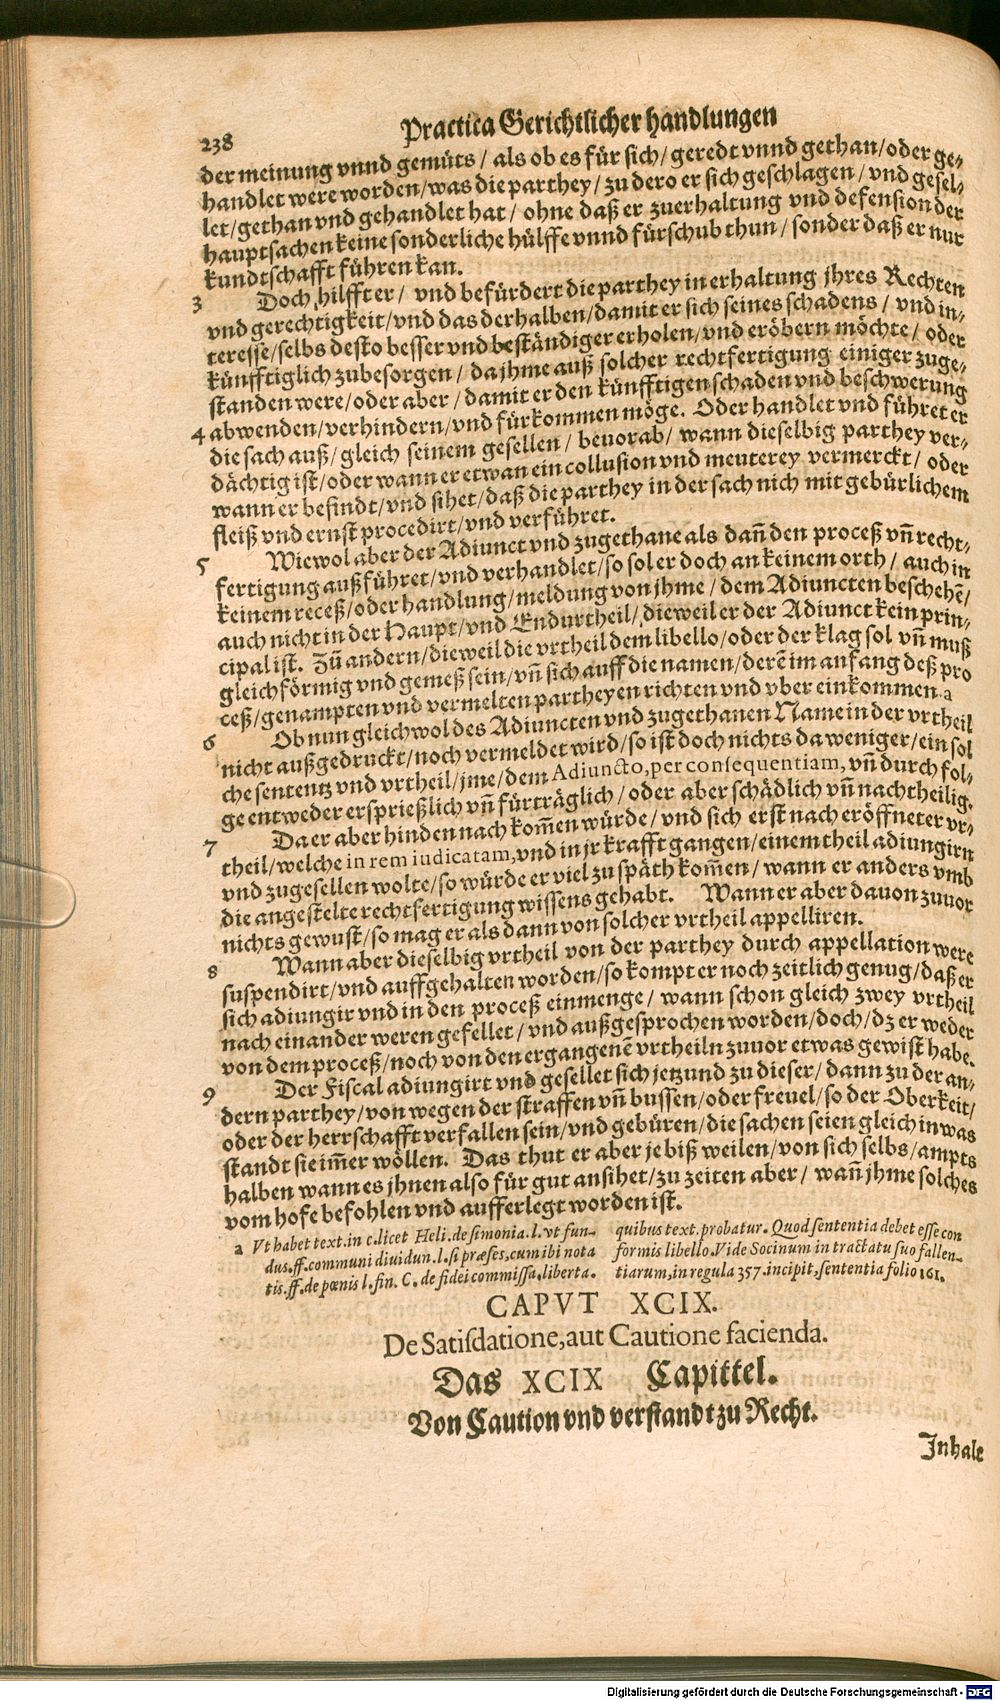 238
Practica Gerichtlicher handlungen
der meinung vnnd gemüts / als ob es für sich / geredt vnnd gethan / oder ge-
handlet were worden / was die parthey / zu dero er sich geschlagen / vnd gesel-
let / gethan vnd gehandlet hat / ohne daß er zuerhaltung vnd defension der
hauptsachen keine sonderliche hülffe vnnd fürschub thun / sonder daß er nur
kundtschafft führen kan.
3 Doch hilfft er / vnd befürdert die parthey in erhaltung jhres Rechten
vnd gerechtigkeit / vnd das derhalben / damit er sich seines schadens / vnd in-
teresse / selbs desto besser vnd beständiger erholen / vnd eröbern möchte / oder
künfftiglich zubesorgen / da jhme auß solcher rechtfertigung einiger zuge-
standen were / oder aber / damit er den künfftigen schaden vnd beschwerung
abwenden / verhindern / vnd fürkommen möge. Oder handlet vnd führet er
4 die sach auß / gleich seinem gesellen / beuorab / wann dieselbig parthey ver-
dächtig ist / oder wann er etwan ein collusion vnd meuterey vermerckt / oder
wann er befindt / vnd sihet / daß die parthey in der sach nich mit gebürlichem
fleiß vnd ernst procedirt / vnd verführet.
5 Wiewol aber der Adiunct vnd zugethane als dañ den proceß vñ recht-
fertigung außführet / vnd verhandlet / so sol er doch an keinem orth / auch in
keinem receß / oder handlung / meldung von jhme / dem Adiuncten beschehē /
auch nicht in der Haupt / vnd Endurtheil / dieweil er der Adiunct kein prin-
cipal ist. Zū andern / dieweil die vrtheil dem libello / oder der klag sol vñ muß
gleichförmig vnd gemeß sein / vñ sich auff die namen / derē im anfang deß pro
ceß / genampten vnd vermelten partheyen richten vnd vber einkommen. a
6 Ob nun gleichwol des Adiuncten vnd zugethanen Name in der vrtheil
nicht außgedruckt / noch vermeldet wird / so ist doch nichts da weniger / ein sol
che sententz vnd vrtheil / jme / dem Adiuncto, per consequentiam, vñ durch fol-
ge entweder ersprießlich vñ fürträglich / oder aber schädlich vñ nachtheilig.
7 Da er aber hinden nach kom̃en würde / vnd sich erst nach eröffneter vr-
theil / welche in rem iudicatam, vnd in jr krafft gangen / einem theil adiungirn
vnd zugesellen wolte / so würde er viel zu späth kom̃en / wann er anders vmb
die angestelte rechtfertigung wissens gehabt. Wann er aber dauon zuuor
nichts gewust / so mag er als dann von solcher vrtheil appelliren.
8 Wann aber dieselbig vrtheil von der parthey durch appellation were
suspendirt / vnd auffgehalten worden / so kompt er noch zeitlich genug / daß er
sich adiungir vnd in den proceß einmenge / wann schon gleich zwey vrtheil
nach einander weren gefellet / vnd außgesprochen worden / doch / dz er weder
von dem proceß / noch von den ergangenē vrtheiln zuuor etwas gewist habe.
9 Der Fiscal adiungirt vnd gesellet sich jetzund zu dieser / dann zu der an-
dern parthey / von wegen der straffen vñ bussen / oder freuel / so der Oberkeit /
oder der herrschafft verfallen sein / vnd gebüren / die sachen seien gleich in was
standt sie im̃er wöllen. Das thut er aber je biß weilen / von sich selbs / ampts
halben wann es jhnen also für gut ansihet / zu zeiten aber / wañ jhme solches
vom hofe befohlen vnd aufferlegt worden ist.
a Vt habet text. in c. licet Heli. de simonia. l. vt fun-
dus. ff. communi diuidun. l. si præses. cum ibi nota
tis. ff. de pœnis l. fin. C. de fidei commissa. liberta.
quibus text. probatur. Quod sententia debet esse con
formis libello. Vide Socinum in tractatu suo fallen-
tiarum, in regula 357. incipit, sententia folio 161.
CAPVT XCIX.
De Satisdatione, aut Cautione facienda.
Das XCIX Capittel.
Von Caution vnd verstandt zu Recht.
Inhalt
Digitalisierung gefördert durch die Deutsche Forschungsgemeinschaft - DFG